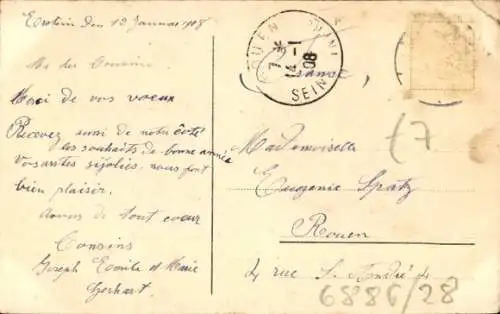 Erstein den 12 Januar 1908
Merci de vos voeux
Recevez aussi de notre côté
les souhaits de bonne année
Vos cartes si jolies, nous font
bien plaisir.
de tout coeur
Cousins
Joseph Emile et Marie
Gerhart
ROUEN
7
14 - 1
08
SEINE
Mademoiselle
Eugenie Spatz
Rouen
4 rue S. André
£7
6886/28